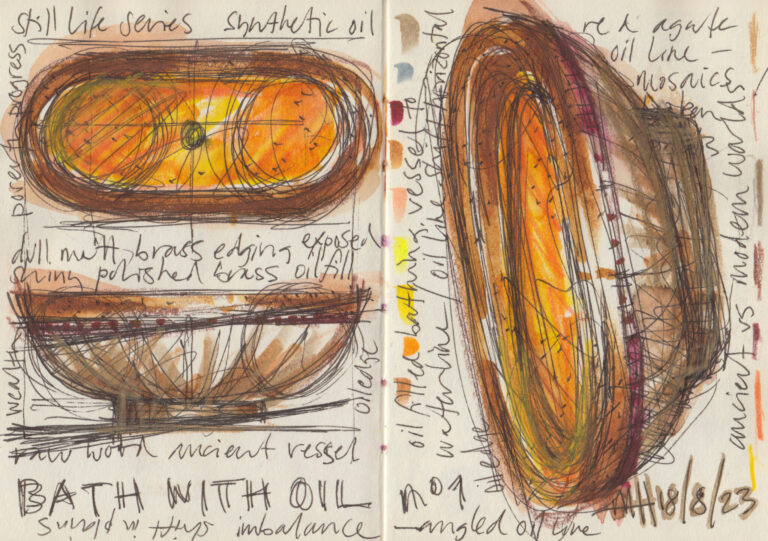 still life series synthetic oil
progress
dull matt brass edging exposed
shiny polished brass oil fill
wealth
oil edge
raw wood ancient vessel
BATH WITH OIL
imbalance
red agate
oil line –
mosaics
oil filled bathing vessel to
waterline / oil line horizontal
ancient vs modern worlds
no 1
angled oil line
18/8/23